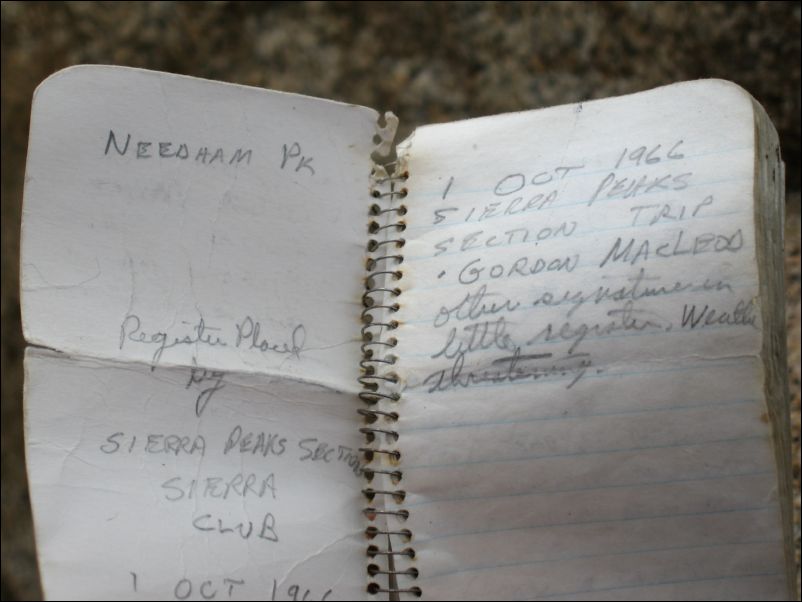 NEEDHAM PK
Register Placed
by
SIERRA PEAKS SECTION
SIERRA
CLUB
1 OCT 1966
1 OCT 1966
SIERRA PEAKS
SECTION TRIP
• GORDON MACLEOD
other signature in
little register. Weather
threatening.